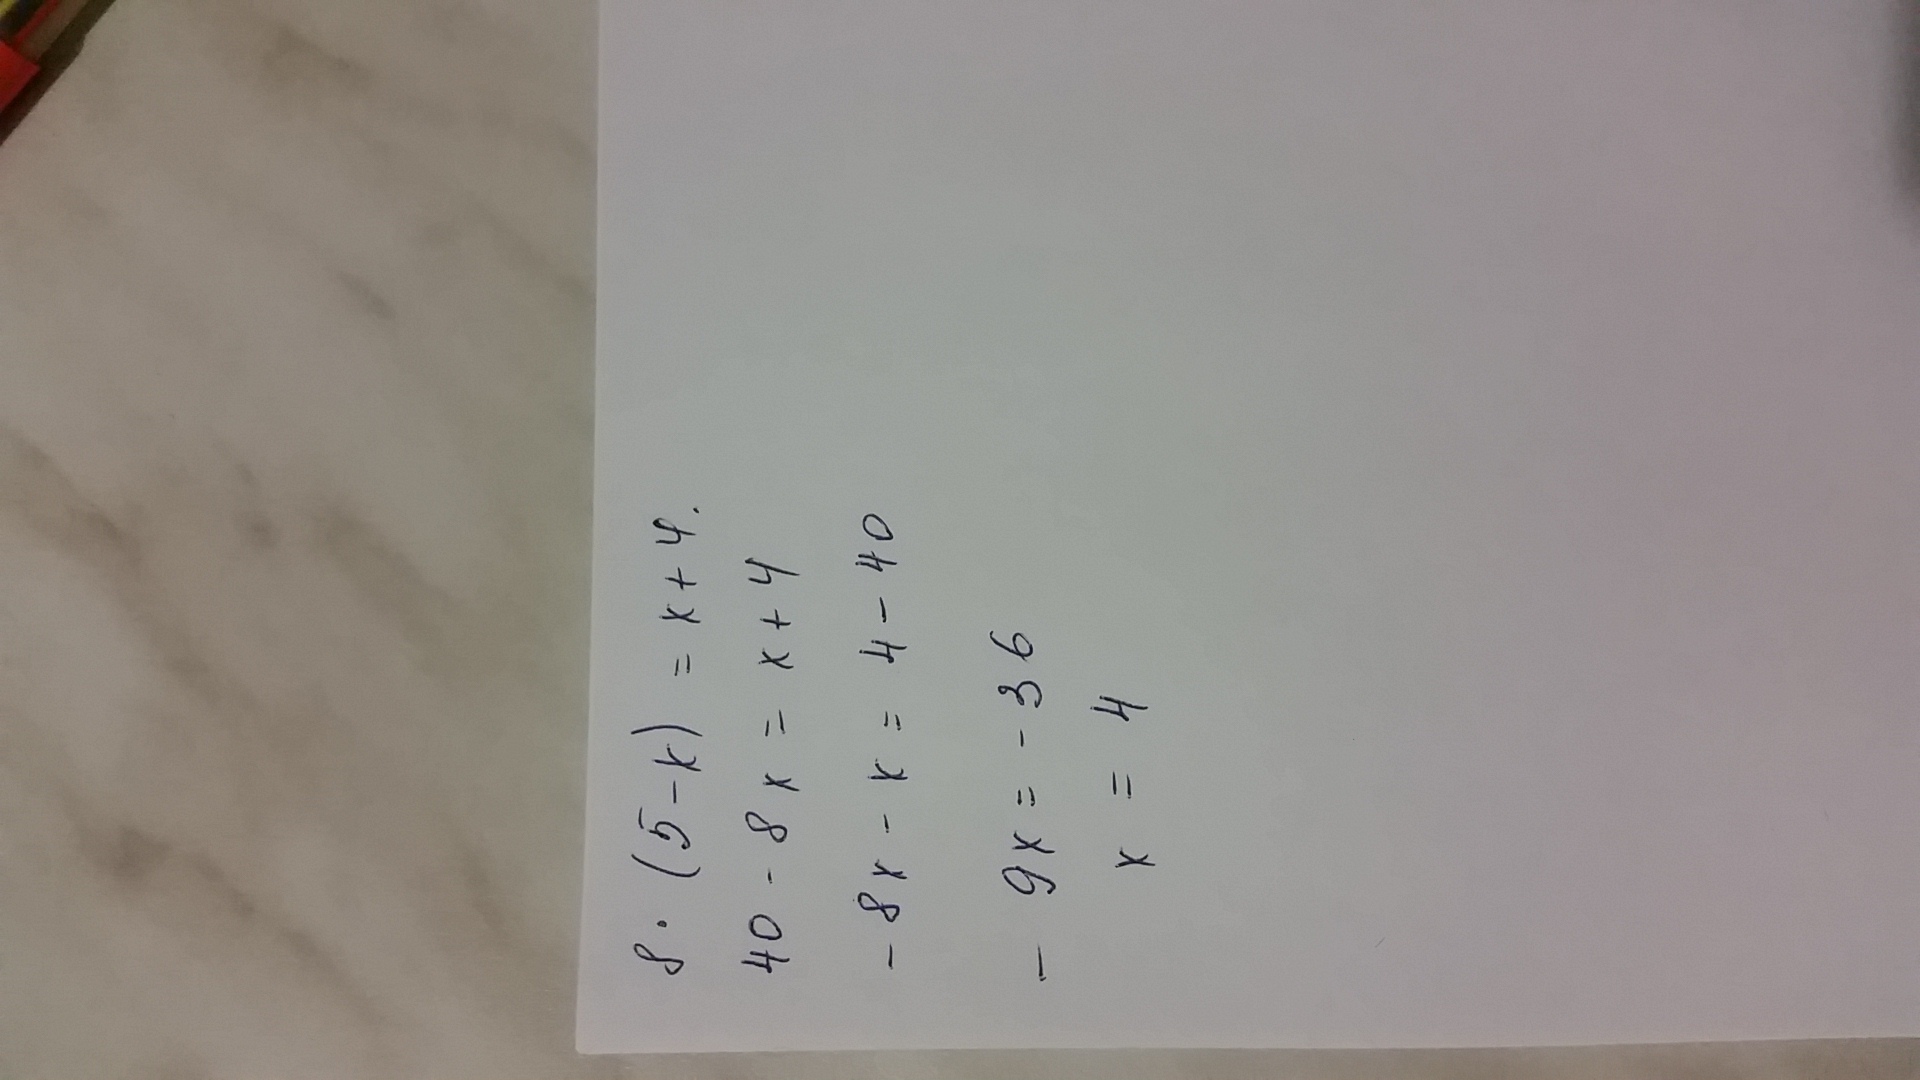 8 · (5 - x) = x + 4.
40 - 8x = x + 4
- 8x - x = 4 - 40
- 9x = - 36
x = 4